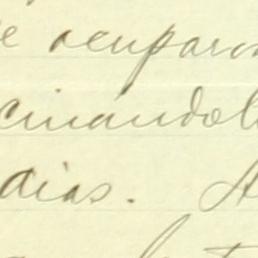 e ocuparon
cinandol
dias. A